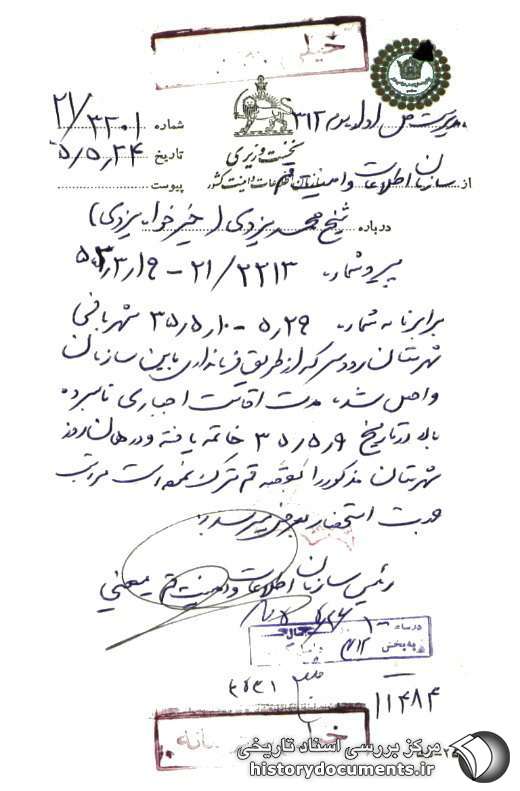 خیلی
مدیریت کل اداره سوم ۳۱۲
شماره ۲۱/۳۲۰۱
نخست وزیری
تاریخ ۵٫۵٫۲۴
سازمان اطلاعات و امنیت کشور
از سازمان اطلاعات و امنیت قم
پیوست
درباره شیخ محمد یزدی (خیرخواه یزدی)
پیرو شماره ۲۱/۲۲۱۳ - ۵٫۳٫۱۹
برابر نامه شماره ۵٫۲۹ - ۳۵٫۵٫۱۰ شهربانی
شهرستان رودسر که از طریق فرمانداری باین سازمان
واصل شده، مدت اقامت اجباری نامبرده
بالا در تاریخ ۳۵٫۵٫۹ خاتمه یافته و در همان روز
شهرستان مذکور را بمقصد قم ترک نموده است مراتب
جهت استحضار بعرض میرسد.
رئیس سازمان اطلاعات و امنیت قم معینی
در ساعت ۱۰
به بخش ۳۱۲
۱۱۴۸۴
مرکز بررسی اسناد تاریخی
historydocuments.ir